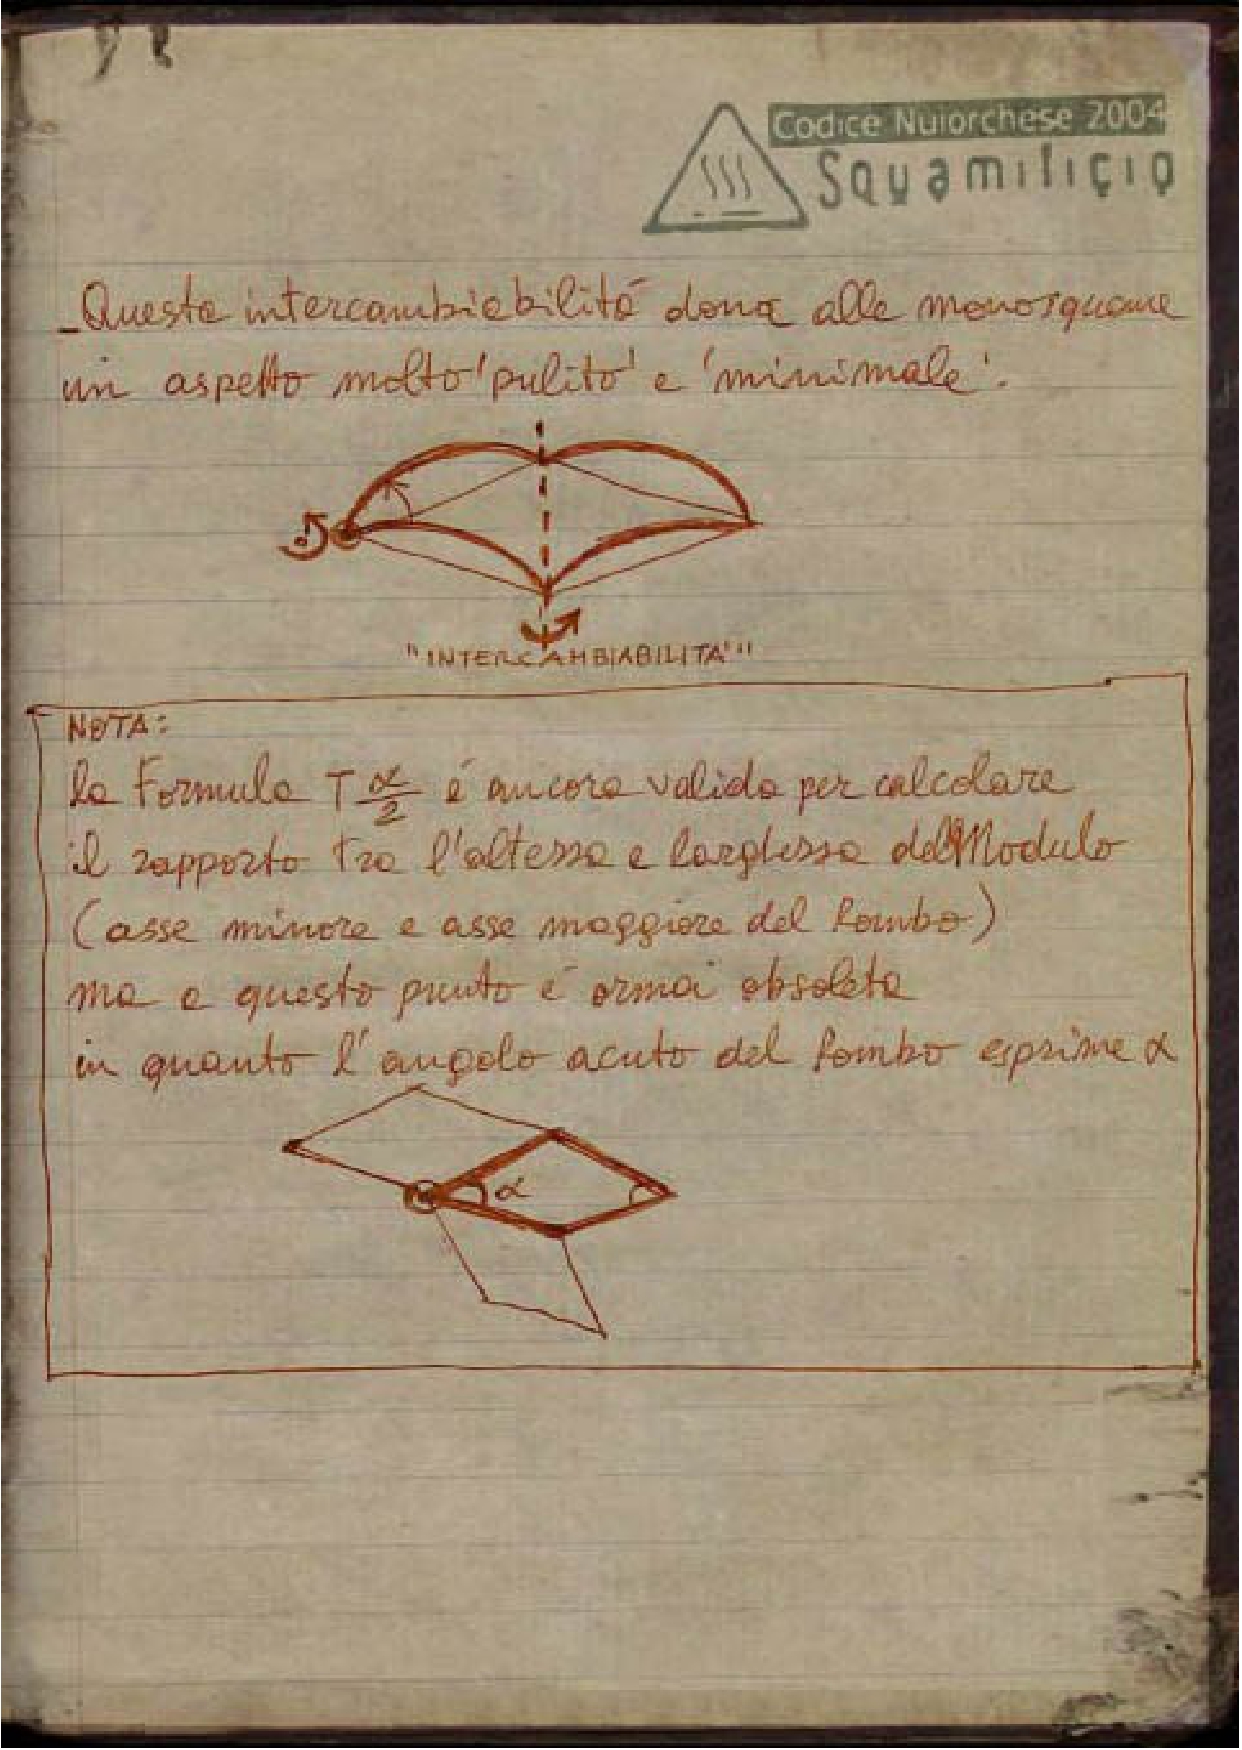 Codice Nuiorchese 2004
Squamificio
- Questa intercambiabilitá dona alle monosquame
un aspetto molto 'pulito' e 'minimale'.
"INTERCAMBIABILITA'"
NOTA:
la Formula T α/2 é ancora valida per calcolare
il rapporto tra l'altezza e larghezza del Modulo
(asse minore e asse maggiore del Rombo)
ma a questo punto é ormai obsoleta
in quanto l'angolo acuto del Rombo esprime α
α